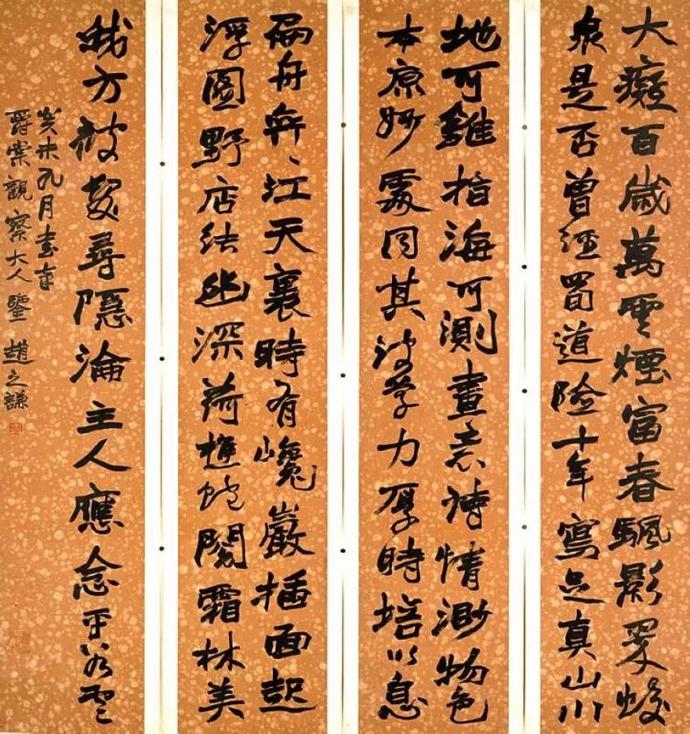 大癡百歲萬雲煙富春颿影
泉是否曾經蜀道險十年寫足真山川
地可雖指海可測畫意詩情渺物色
本原妙處同其學力厚時培以息
扁舟江天裏時有巉巖插面起
浮圖野店結幽深荷樵蛇閣霜林美
我方被髮尋隱淪主人應念平雲
癸未九月書奉
爵棠觀察大人鑒 趙之謙